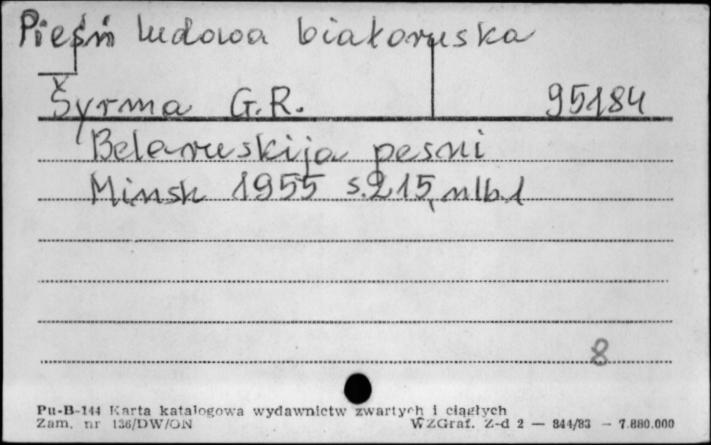 Pieśń ludowa białoruska
Šyrma G.R. 95184
Belaruskija pesni
Minsk 1955 s.215, nlb.1
8
Pu-B-144 Karta katalogowa wydawnictw zwartych i ciągłych
Zam. nr 136/DW/ON WZGraf. Z-d 2 — 844/83 — 7.880.000